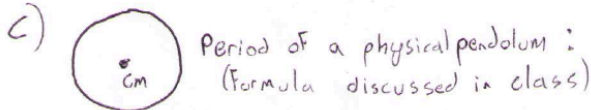 c)
Period of a physical pendolum :
(Formula discussed in class)
cm